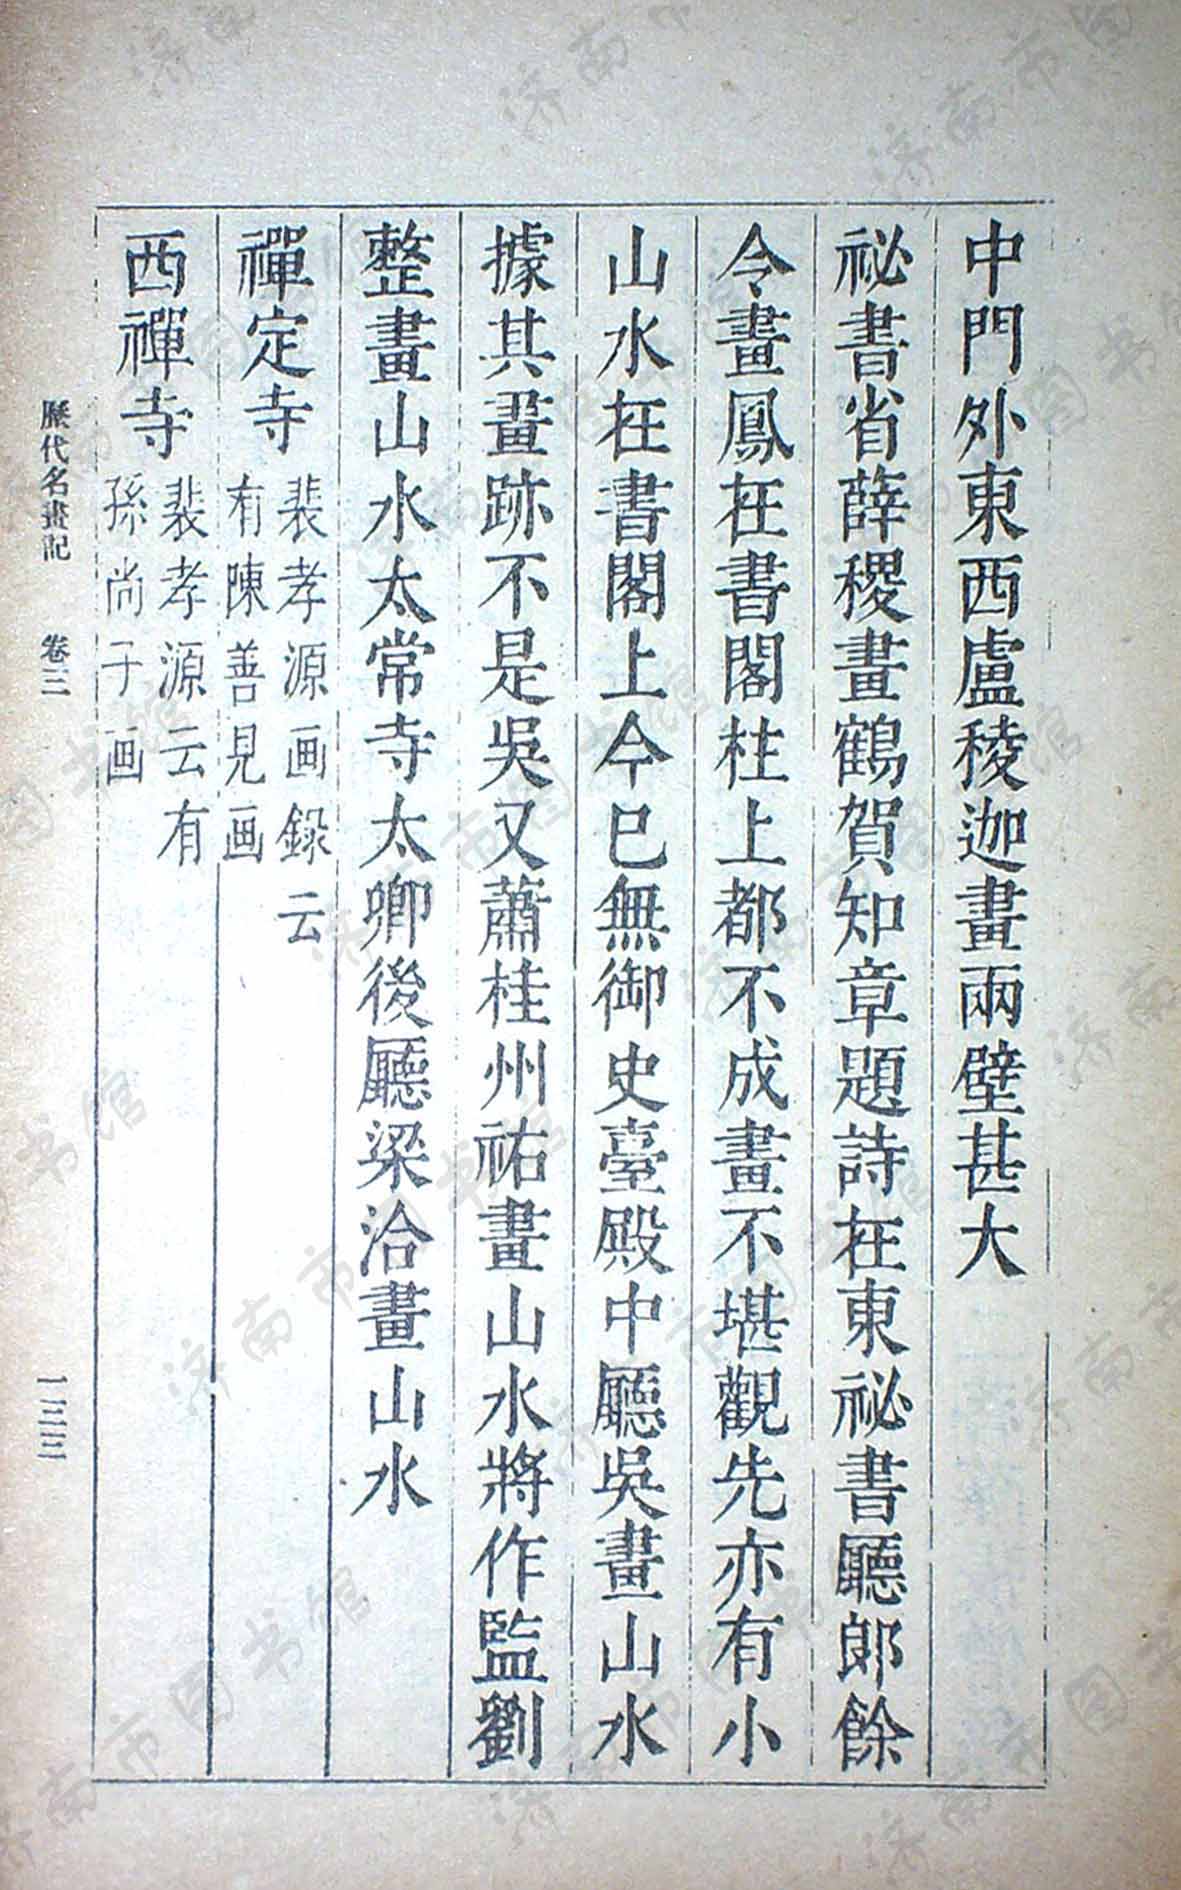 中門外東西盧稜迦畫兩壁甚大
祕書省薛稷畫鶴賀知章題詩在東祕書廳郎餘
令畫鳳在書閣柱上都不成畫不堪觀先亦有小
山水在書閣上今巳無御史臺殿中廳吳畫山水
據其畫跡不是吳又蕭桂州祐畫山水將作監劉
整畫山水太常寺太卿後廳梁洽畫山水
禪定寺
裴孝源画録云
有陳善見画
西禪寺
裴孝源云有
孫尚子画
歷代名畫記 卷三 一三三
济南市图书馆